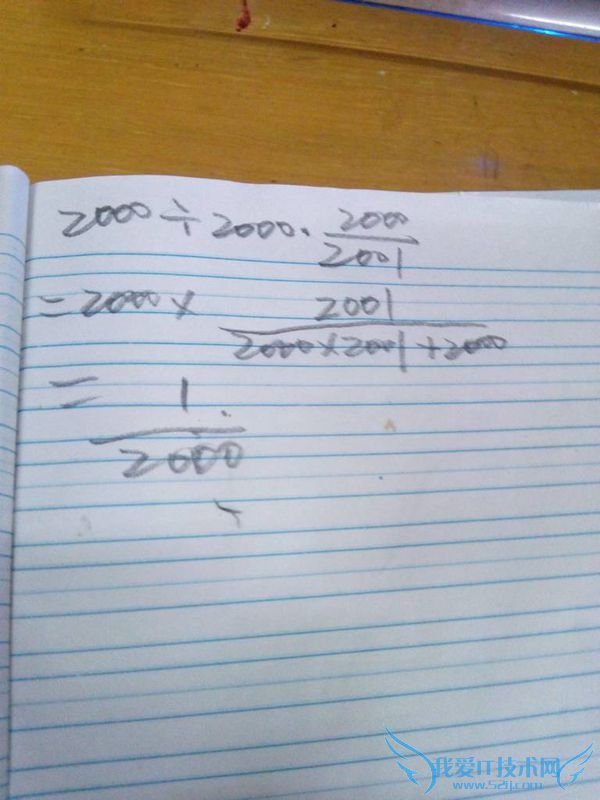 2000÷2000·2000/2001
=2000×2001/2000×2001+2000
=1/2000
我爱IT技术网
www.52ij.com